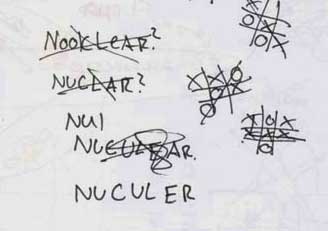 NOOKLEAR?
NUCLAR?
NUI
NUCULEAR.
NUCULER